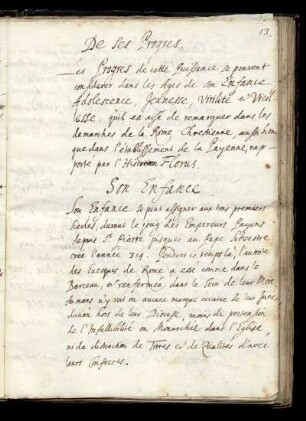 13.
De ses Progres.
Les Progres de cette Puissance se peuvent
considerer dans les ages de son Enfance
Adolescence, Jeunesse, Virilité & Vieil
lesse, qu'il est aisé de remarquer dans les
demarches de la Rome Chrestienne, aussi bien
que dans l'établissement de la Payenne, rap
porté par l'Historien Florus.
Son Enfance
Son Enfance se peut assigner aux trois premiers
Siecles, durant le joug des Empereurs Payens
depuis St. Pierre jusques au Pape Silvestre
créé l'année 314. Pendant ce temps là, l'autorité
des Evesques de Rome a esté comme dans le
Berceau, & renfermée dans le Sein de leur Mere
n'y voit on aucune marque certaine de leur juris
diction hors de leur Diocese, moins de pretention
de l'Infallibilité ou Monarchie dans l'Eglise,
ni de distinction de Titres & de Qualités d'avec
leurs Confreres.